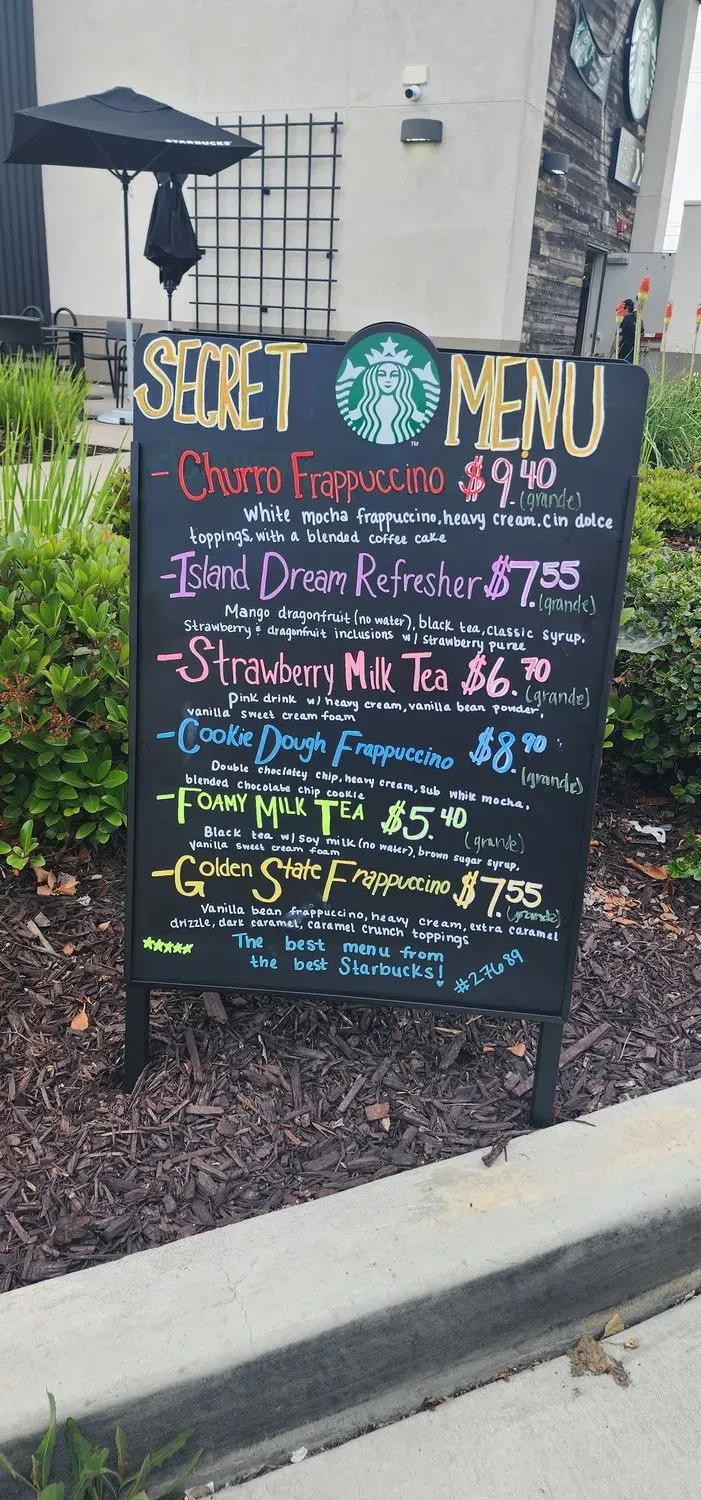 STARBUCKS
SECRET MENU
TM
- Churro Frappuccino $9.40 (grande)
White mocha frappuccino, heavy cream, cin dolce
toppings, with a blended coffee cake
- Island Dream Refresher $7.55 (grande)
Mango dragonfruit (no water), black tea, classic syrup,
Strawberry & dragonfruit inclusions w/ strawberry puree
- Strawberry Milk Tea $6.70 (grande)
Pink drink w/ heavy cream, vanilla bean powder,
vanilla sweet cream foam
- Cookie Dough Frappuccino $8.90 (grande)
Double choclatey chip, heavy cream, sub white mocha,
blended chocolate chip cookie
- FOAMY MILK TEA $5.40 (grande)
Black tea w/ soy milk (no water), brown sugar syrup,
Vanilla sweet cream foam
- Golden State Frappuccino $7.55 (grande)
Vanilla bean frappuccino, heavy cream, extra caramel
drizzle, dark caramel, caramel crunch toppings
The best menu from
the best Starbucks!
#27689